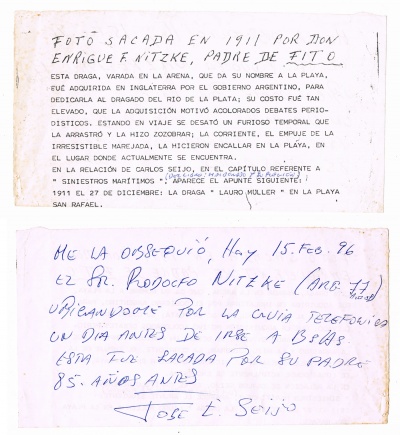 FOTÓ SACADA EN 1911 POR DON
ENRIQUE F. NITZKE, PADRE DE FITO
ESTA DRAGA, VARADA EN LA ARENA, QUE DA SU NOMBRE A LA PLAYA,
FUÉ ADQUIRIDA EN INGLATERRA POR EL GOBIERNO ARGENTINO, PARA
DEDICARLA AL DRAGADO DEL RIO DE LA PLATA; SU COSTO FUÉ TAN
ELEVADO, QUE LA ADQUISICIÓN MOTIVÓ ACOLORADOS DEBATES PERIO-
DISTICOS. ESTANDO EN VIAJE SE DESATÓ UN FURIOSO TEMPORAL QUE
LA ARRASTRÓ Y LA HIZO ZOZOBRAR; LA CORRIENTE, EL EMPUJE DE LA
IRRESISTIBLE MAREJADA, LA HICIERON ENCALLAR EN LA PLAYA, EN
EL LUGAR DONDE ACTUALMENTE SE ENCUENTRA.
EN LA RELACIÓN DE CARLOS SEIJO, EN EL CAPÍTULO REFERENTE A
" SINIESTROS MARÍTIMOS ", APARECE EL APUNTE SIGUIENTE:
1911 EL 27 DE DICIEMBRE: LA DRAGA " LAURO MULLER " EN LA PLAYA
SAN RAFAEL.
ME LA OBSEQUIÓ, HOY 15. FEB. 96
EL SR. RODOLFO NITZKE (ARG. 77
UBICANDOME POR LA GUIA TELEFONICA
UN DIA ANTES DE IRSE A BsAs
ESTA FUE SACADA POR SU PADRE
85. AÑOS ANTES
JOSE E. SEIJO